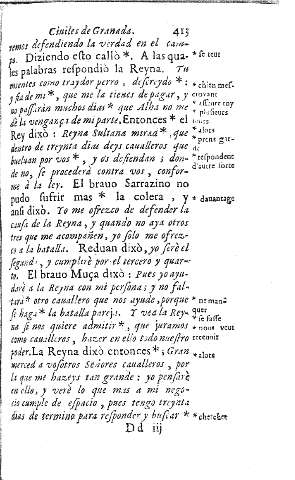 Ciuiles de Granada. 413
remos defendiendo la verdad en el cam-
po. Diziendo esto callò *. A las qua * se teut
les palabras respondiò la Reyna. Tu
mientes como traydor perro, descreydo * : * chien mes-
y fia de mi * , que me la tienes de pagar, y croyant
no passarán muchos dias * que Alha no me * asseure toy
de la vengança de mi parte. Entonces * el * plusieurs
Rey dixò : Reyna Sultana mirad * , que * alors
dentro de treynta dias deys caualleros que prens gar-
bueluan por vos * , y os defendan ; don- * respondent
de no, se procederá contra vos, confor- d'autre sorte
me à la ley. El brauo Sarrazino no
pudo sufrir mas * la colera , y * dauantage
ansi dixò. Yo me ofrezco de defender la
causa de la Reyna, y quando no aya otros
tres que me acompañen, yo solo me ofrez-
co a la batalla. Reduan dixò, yo seré el
segundo, y cumpliré por el tercero y quar-
to. El brauo Muça dixò : Pues yo ayu-
daré à la Reyna con mi persona; y no fal-
tará otro cauallero que nos ayude, porque * ne manquer
se haga * la batalla pareja. Y vea la Rey- * se fasse
na si nos quiere admitir * , que juramos * nous veut
como caualleros, hazer en ello todo nuestro
poder. La Reyna dixò entonces * ; Gran * alors
merced a vosotros Señores caualleros, por
la que me hazeys tan grande : yo pensaré
en ello, y veré lo que mas a mi nego-
cio cumple de espacio, pues tengo treynta
dias de termino para responder y buscar * * chercher
D d iij